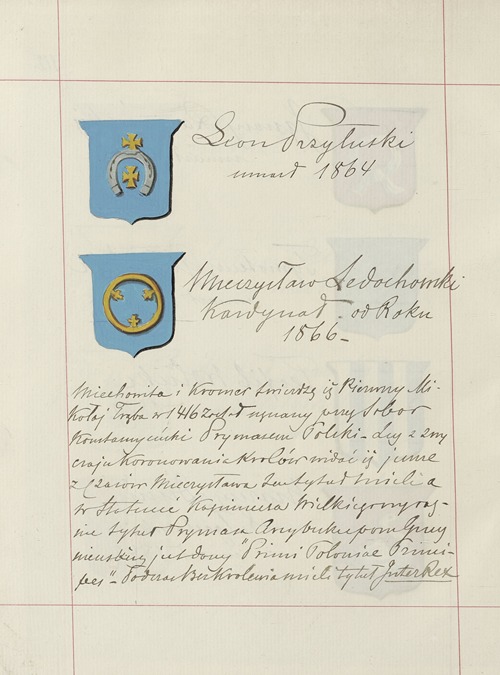 Leon Przyłuski
umarł 1864
Mieczysław Ledochowski
Kardynał od Roku
1866 -
Miechowita i Kromer twierdzą iż Pierwszy Mi-
kołaj Trąba w 1416 został uznany przez Sobor
Konstancyeński Prymasem Polski - lecz z zwy
czaju Koronowania Królów widać iż jeszcze
z Czasów Mieczysława ten tytuł mieli a
w Statucie Kazimierza Wielkiego wyraź-
nie tytuł Prymasa Arcybiskupom Gnieź
nieńskim jest dany "Primi Poloniae Princi-
pes" - Podczas Bezkrólewia mieli tytuł InterRex